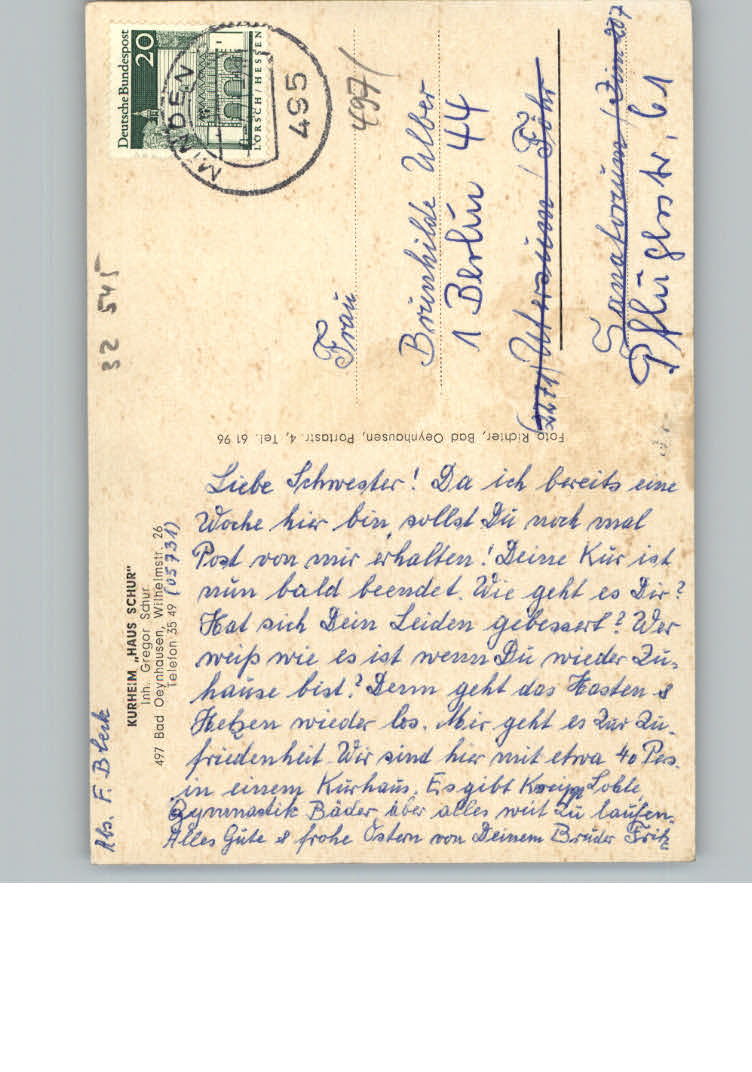 Deutsche Bundespost
20
LORSCH/HESSEN
MINDEN
495
497/
32 545
Frau
Brunhilde Ulber
1 Berlin 44
(2271) Utersum / Föhr
Sanatorium / Zim 207
Pflügerstr. 61
Foto Richter, Bad Oeynhausen, Portastr. 4, Tel. 61 96
Abs. F. Bleck
KURHEIM „HAUS SCHUR"
Inh. Gregor Schur
497 Bad Oeynhausen, Wilhelmstr. 26
Telefon 35 49 (05731)
Liebe Schwester! Da ich bereits eine
Woche hier bin, sollst Du noch mal
Post von mir erhalten! Deine Kur ist
nun bald beendet. Wie geht es Dir?
Hat sich Dein Leiden gebessert? Wer
weiß wie es ist wenn Du wieder zu-
hause bist? Denn geht das Hasten &
Hetzen wieder los. Mir geht es zur Zu-
friedenheit. Wir sind hier mit etwa 40 Pers.
in einem Kurhaus. Es gibt Kneipp, Sohle,
Gymnastik Bäder, aber alles weit zu laufen.
Alles Gute & frohe Ostern von Deinem Bruder Fritz